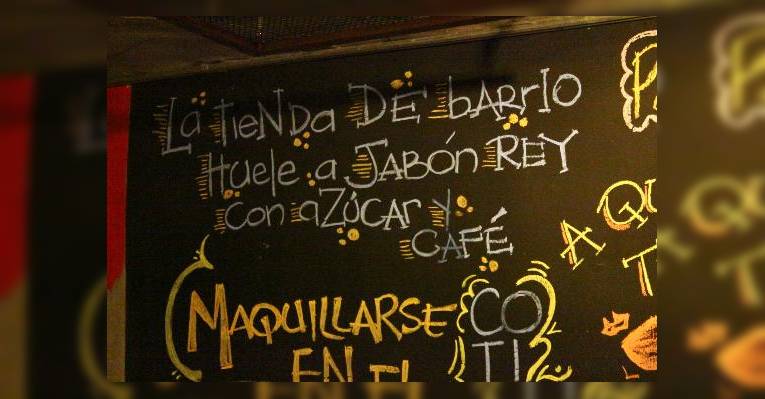 La tienda DE bARrIO
Huele a JABÓN REY
Con aZÚCAR y
CAFÉ
MAQUILLARSE
EN EL
CO
TI
A QU